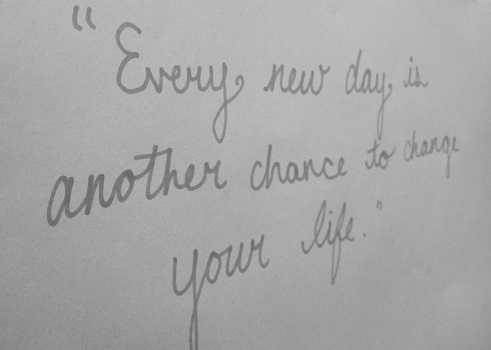 "Every new day is
another chance to change
your life."